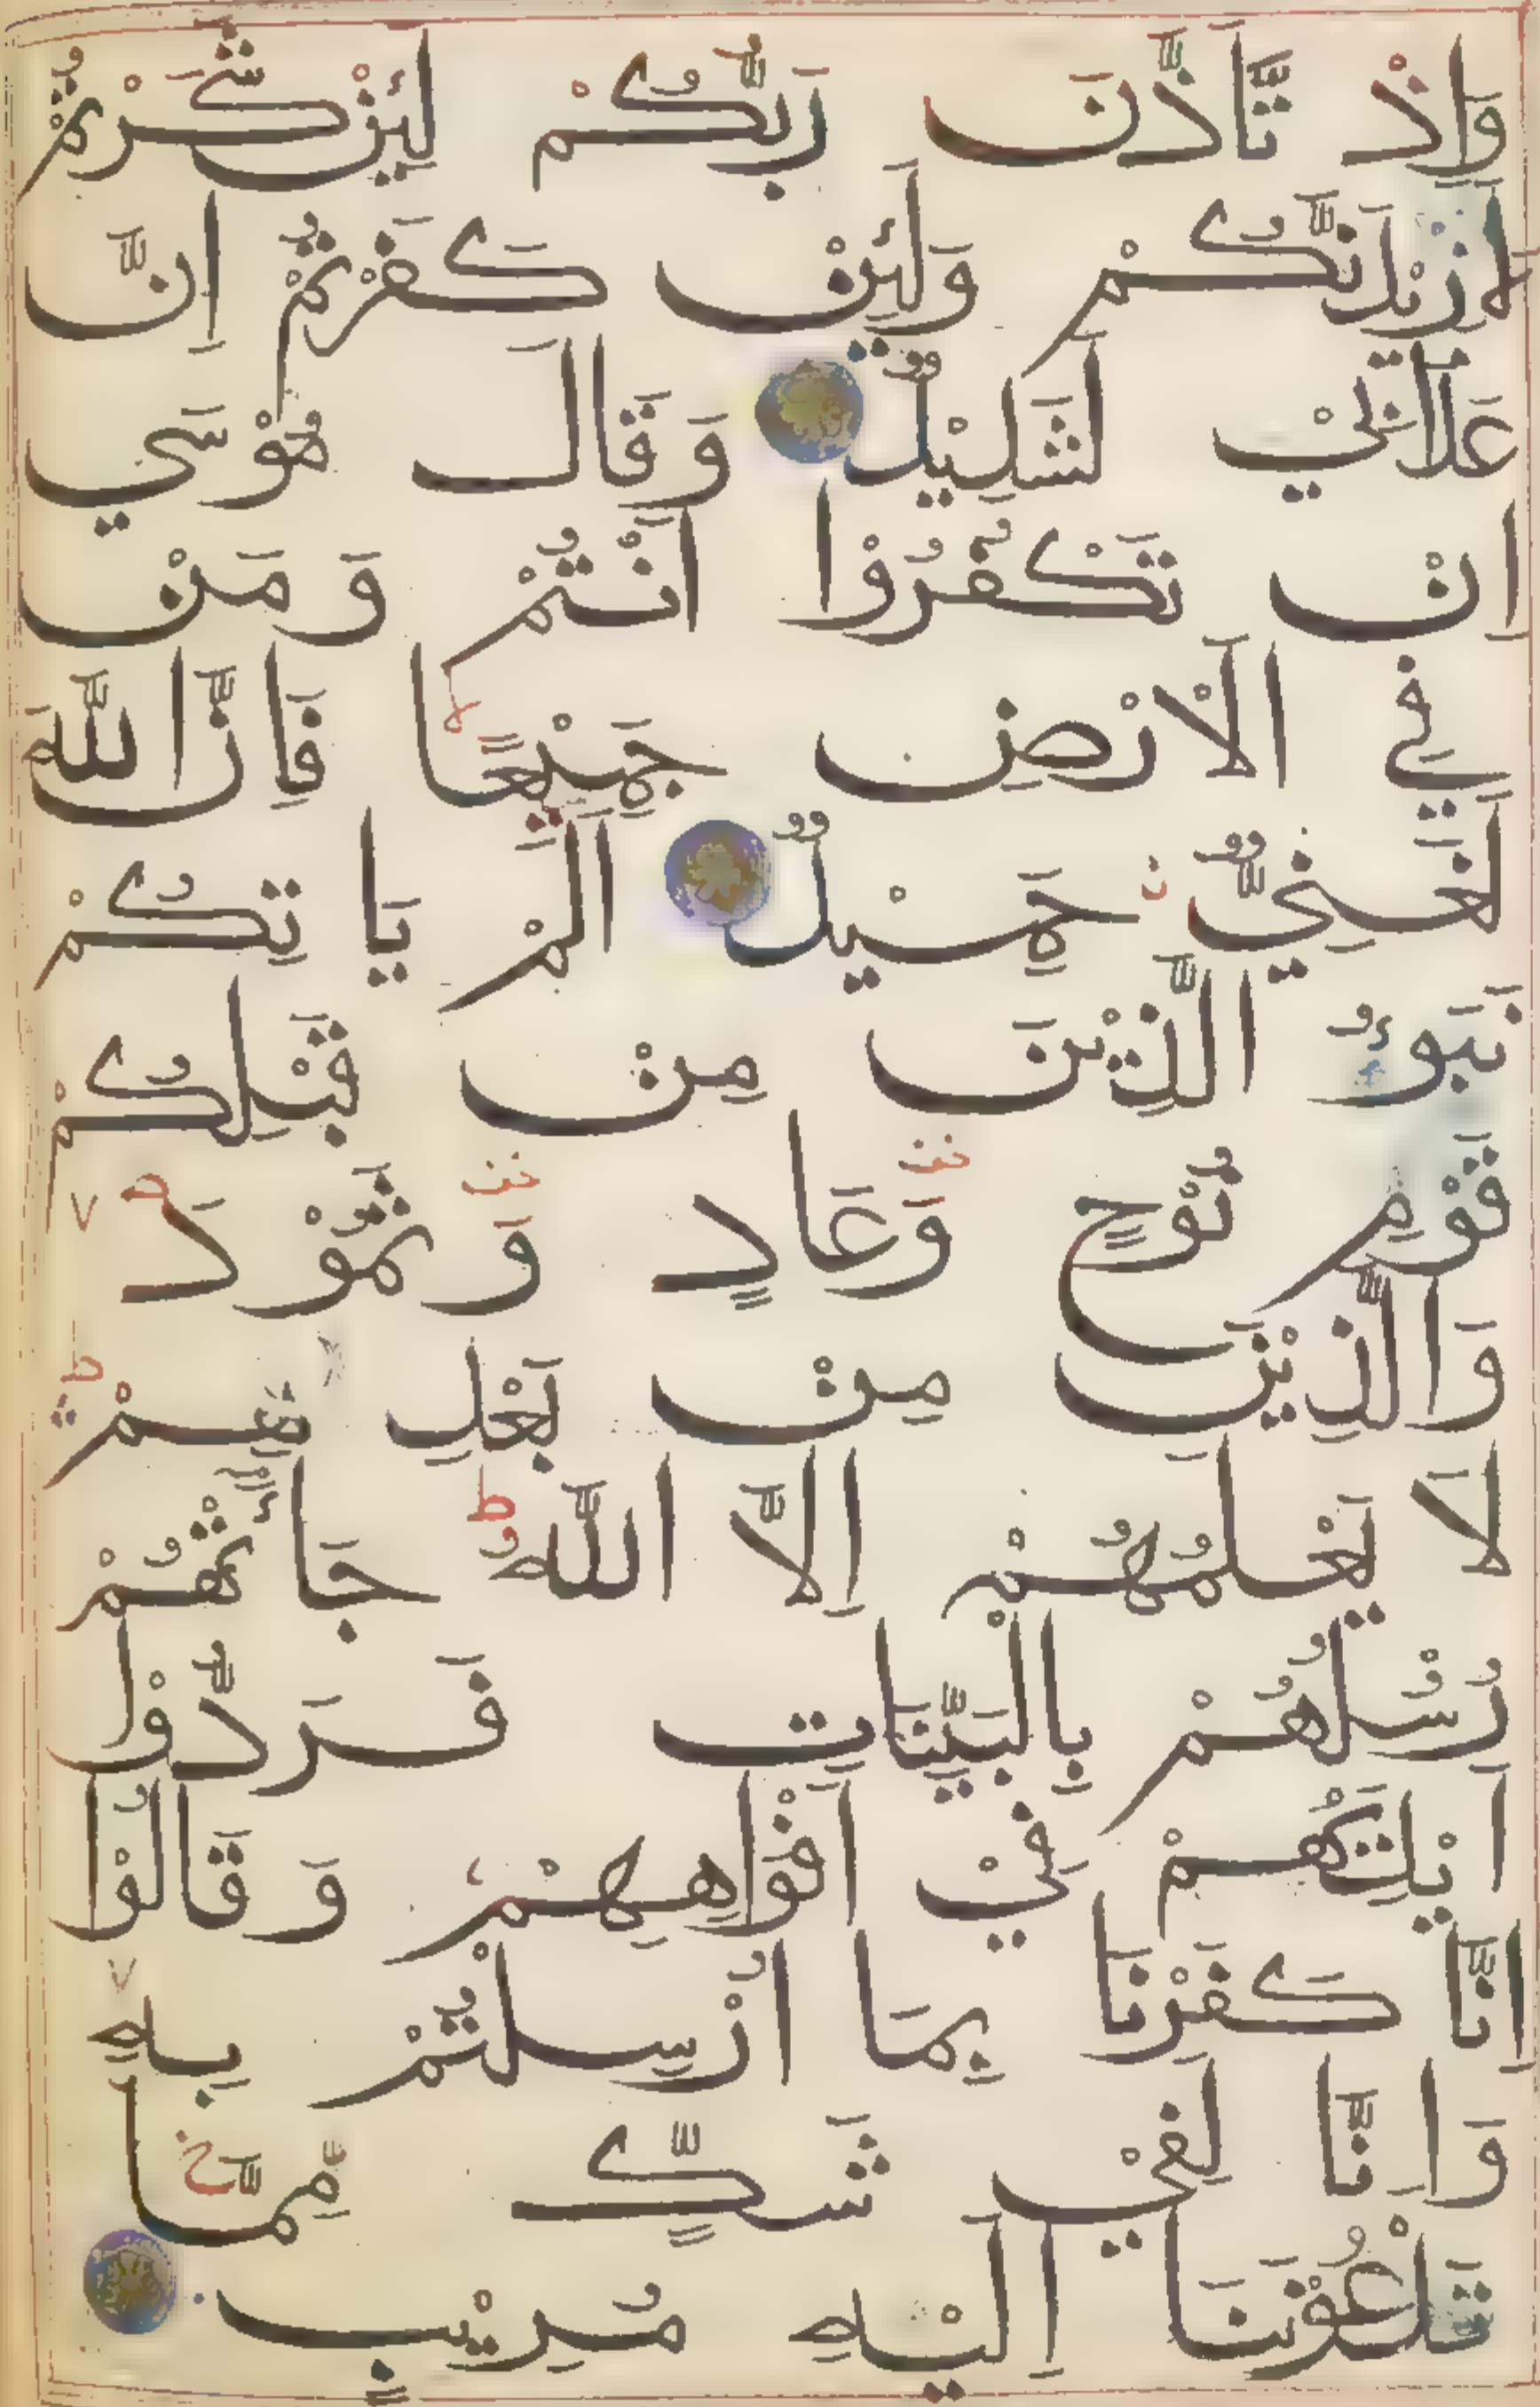 وَاِذْ تَاَذَّنَ رَبُّكُمْ لَئِنْ شَكَرْتُمْ
لَاَزِيْدَنَّكُمْ وَلَئِنْ كَفَرْتُمْ اِنَّ
عَذَابِيْ لَشَدِيْدٌ وَقَالَ مُوْسٰي
اِنْ تَكْفُرُوْا اَنْتُمْ وَمَنْ
فِي الْاَرْضِ جَمِيْعًا فَاِنَّ اللّٰهَ
لَغَنِيٌّ حَمِيْدٌ اَلَمْ يَاْتِكُمْ
نَبَؤُ الَّذِيْنَ مِنْ قَبْلِكُمْ
قَوْمِ نُوْحٍ وَعَادٍ وَثَمُوْدَ
وَالَّذِيْنَ مِنْ بَعْدِهِمْ
لَا يَعْلَمُهُمْ اِلَّا اللّٰهُ جَآءَتْهُمْ
رُسُلُهُمْ بِالْبَيِّنَاتِ فَرَدُّوْا
اَيْدِيَهُمْ فِيْ اَفْوَاهِهِمْ وَقَالُوْا
اِنَّا كَفَرْنَا بِمَا اُرْسِلْتُمْ بِهٖ
وَاِنَّا لَفِيْ شَكٍّ مِمَّا
تَدْعُوْنَنَا اِلَيْهِ مُرِيْبٍ